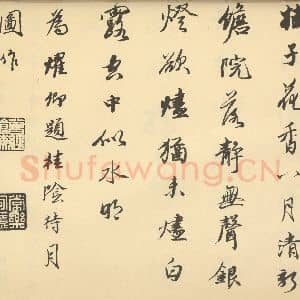 桂子花香八月清新
檐院落静無聲銀
燈欲燼猶未燼白
露空中似水明
為燿卿題桂陰待月
圖作
Shufawang.CN